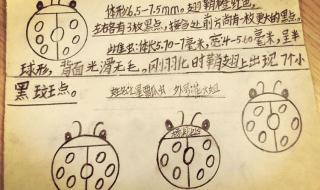 体形6.5-7.5mm。翅鞘橙红色。
左右各有3枚黑点，接合处前方尚有一枚更大的黑点。
体长5.70-7毫米，宽4-5.60毫米，呈半
球形，背面光滑无毛。刚羽化时鞘翅上出现7个小
黑斑点。